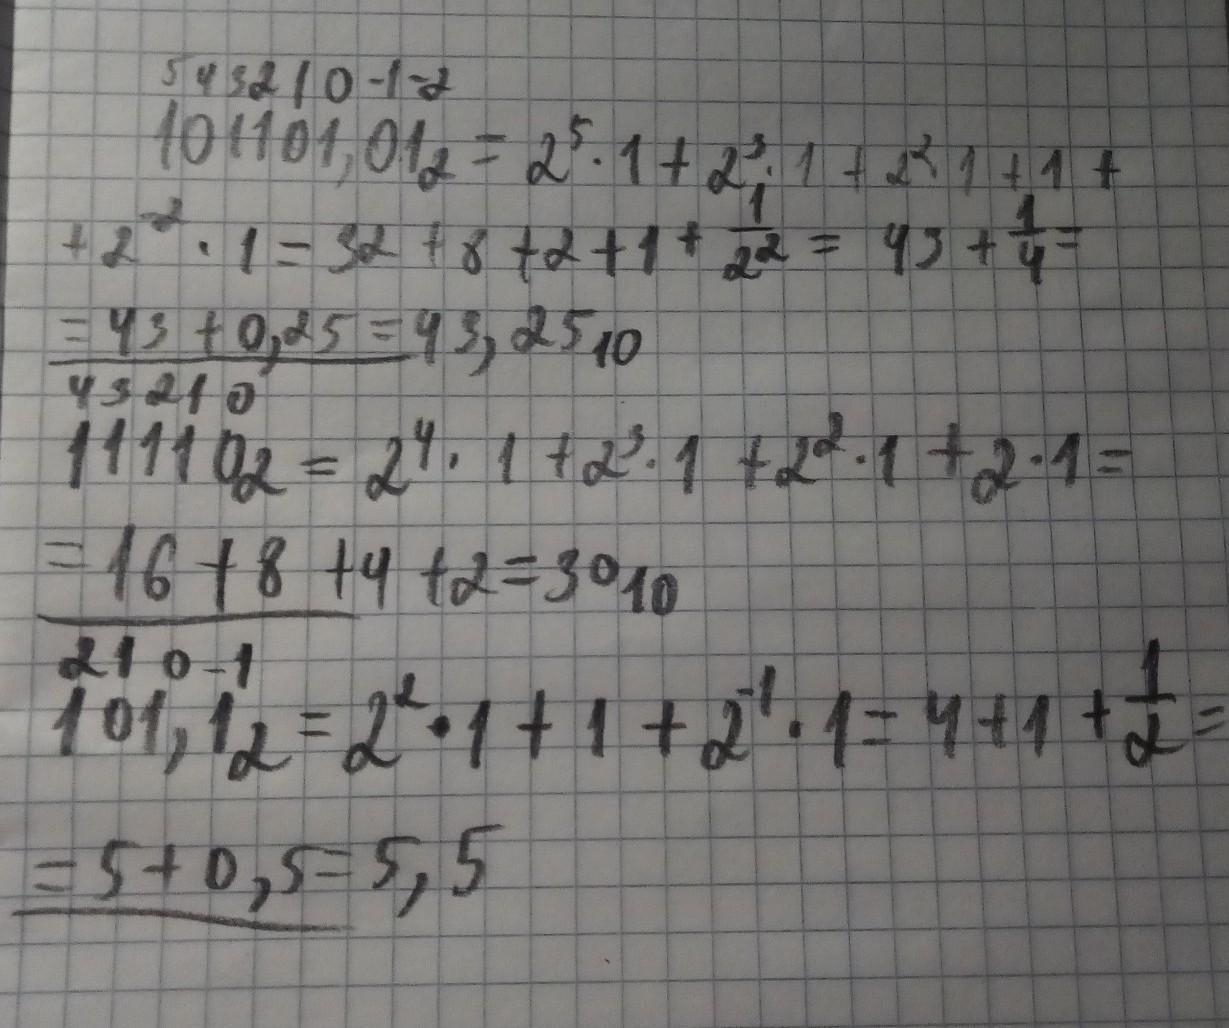 5 4 3 2 1 0 -1 -2
101101,01₂ = 2⁵ · 1 + 2³ · 1 + 2² · 1 + 1 +
+ 2⁻² · 1 = 32 + 8 + 2 + 1 + 1/2² = 43 + 1/4 =
= 43 + 0,25 = 43,25₁₀
4 3 2 1 0
11110₂ = 2⁴ · 1 + 2³ · 1 + 2² · 1 + 2 · 1 =
= 16 + 8 + 4 + 2 = 30₁₀
2 1 0 -1
101,1₂ = 2² · 1 + 1 + 2⁻¹ · 1 = 4 + 1 + 1/2 =
= 5 + 0,5 = 5,5